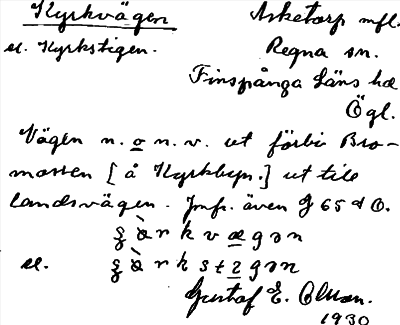 Kyrkvägen Asketorp mfl.
el. Kyrkstigen. Regna sn.
Finspånga Läns hd
Ögl.
Vägen n. o n. v. ut förbi Bro-
mossen [å Kyrkbyn.] ut till
landsvägen. Jmfr. även G 65 d O.
el.
Gustaf E. Olsson.
1930